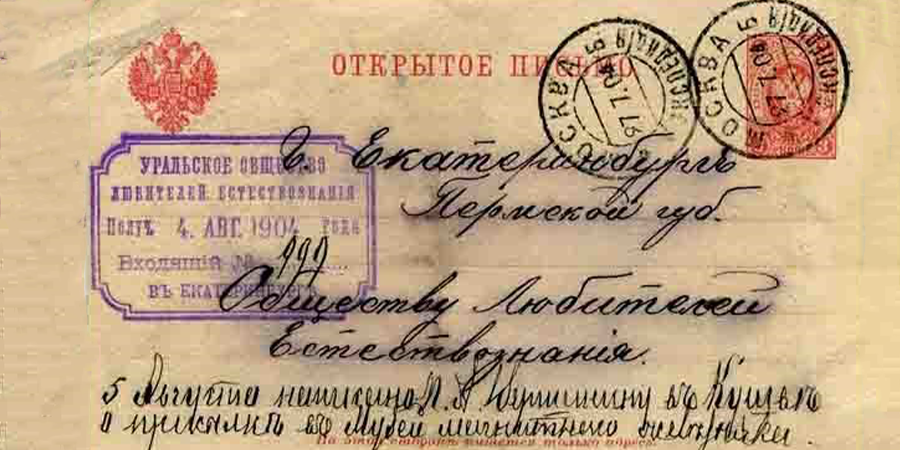 ОТКРЫТОЕ ПИСЬМО
МОСКВА Б ЭКСПЕДИЦІЯ
27.7.04
МОСКВА Б ЭКСПЕДИЦІЯ
27.7.04
УРАЛЬСКОЕ ОБЩЕСТВО
ЛЮБИТЕЛЕЙ ЕСТЕСТВОЗНАНІЯ
Получ. 4. АВГ. 1904 года
Входящій №
ВЪ ЕКАТЕРИНБУРГѢ
Г. Екатеринбургъ
Пермской губ.
Обществу Любителей
Естествознанія.
5 Августа написано въ Кушвѣ
о присылкѣ въ Музей магнитнаго
На этой сторонѣ пишется только адресъ.